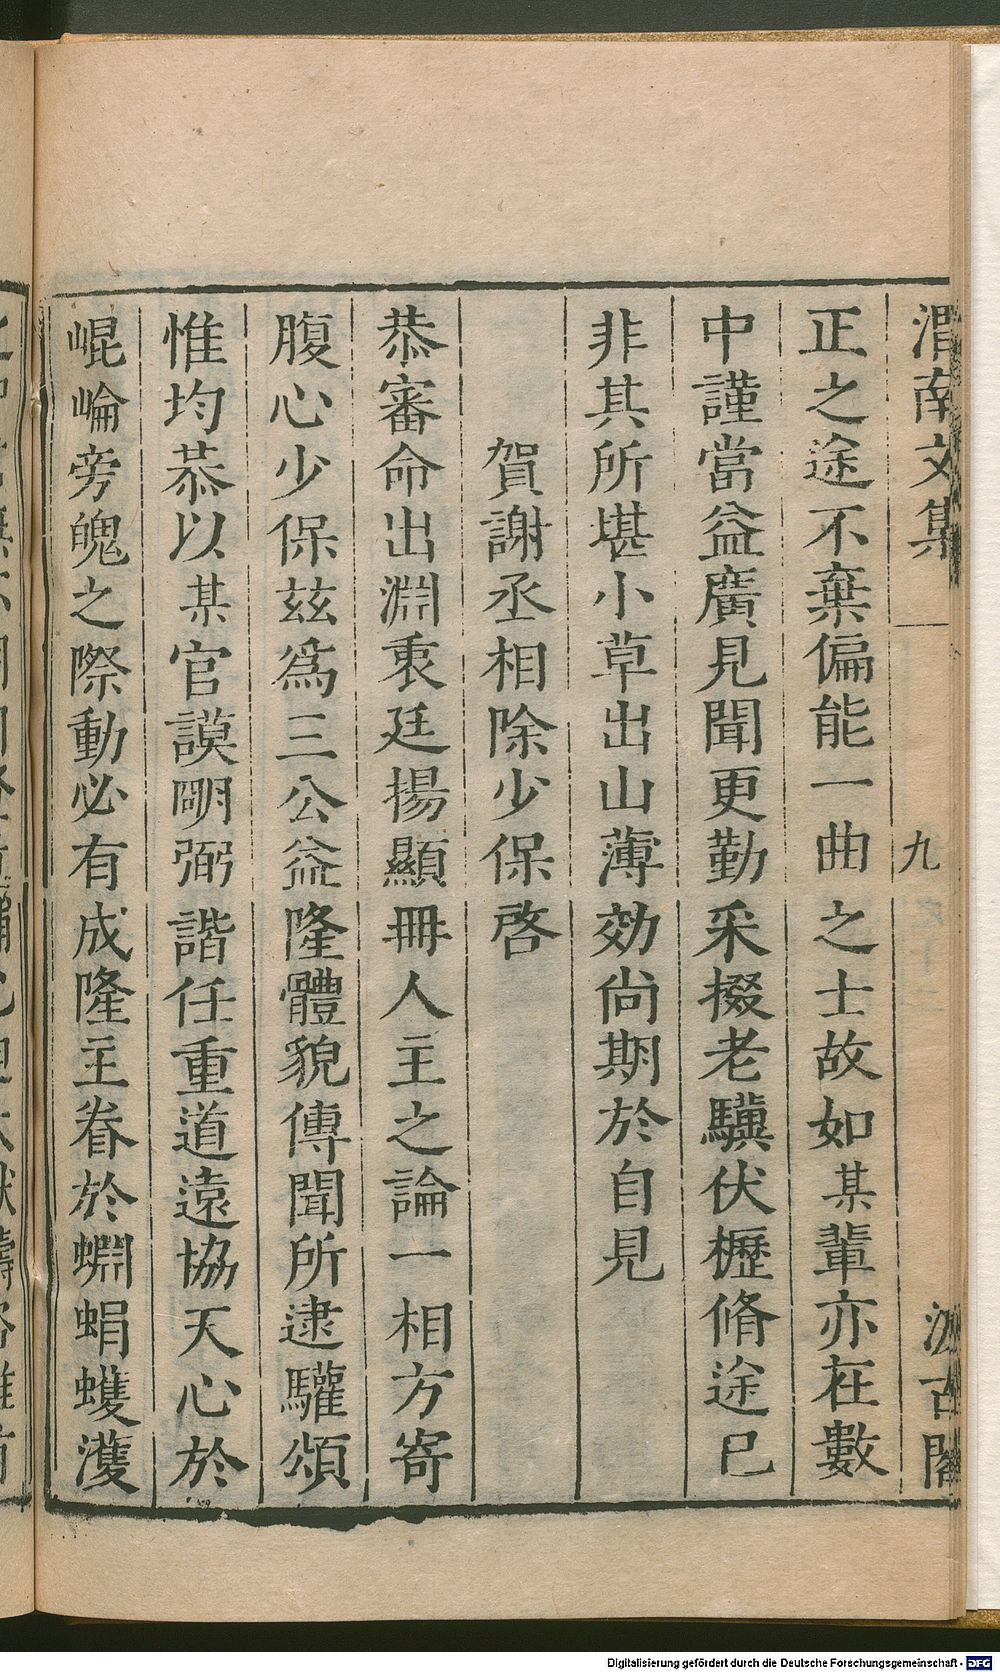 渭南文集
九
汲古閣
正之途不棄偏能一曲之士故如某輩亦在數
中謹當益廣見聞更勤采掇老驥伏櫪脩途已
非其所堪小草出山薄効尚期於自見
賀謝丞相除少保啓
恭審命出淵衷廷揚顯冊人主之論一相方寄
腹心少保茲爲三公益隆體貌傳聞所逮驩頌
惟均恭以某官謨明弼諧任重道遠協天心於
崐崘旁魄之際動必有成隆主眷於蜵蜎蠖濩
Digitalisierung gefördert durch die Deutsche Forschungsgemeinschaft - DFG